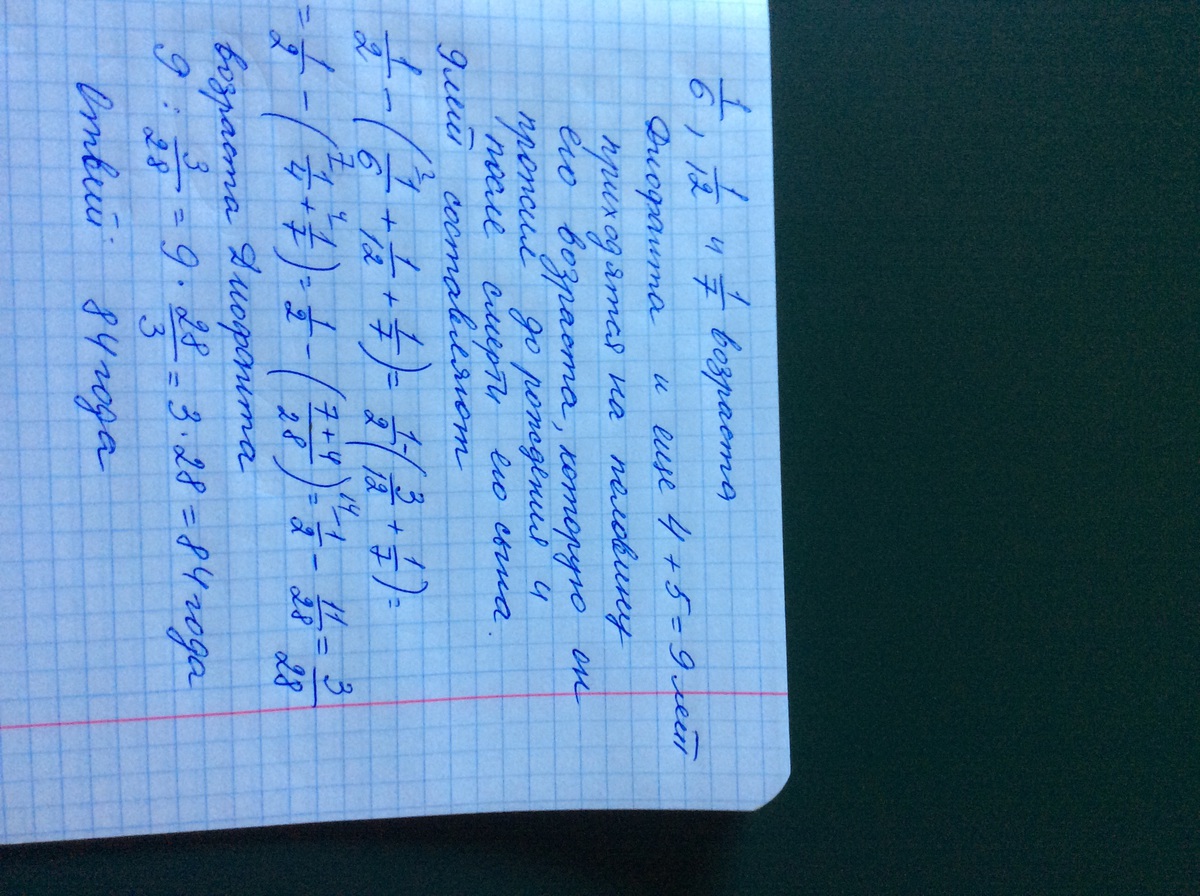 1/6, 1/12 и 1/7 возраста
Диофанта и еще 4 + 5 = 9 лет
приходятся на половину
его возраста, которую он
прожил до рождения и
после смерти его сына.
9 лет составляют
1/2 - (1/6 ² + 1/12 + 1/7) = 1/2 - (3/12 + 1/7) =
= 1/2 - (1/4 ⁷ + 1/7 ⁴) = 1/2 - ((7+4)/28) = 1/2 ¹⁴ - 11/28 = 3/28
возраста Диофанта
9 : 3/28 = 9 · 28/3 = 3 · 28 = 84 года
Ответ: 84 года